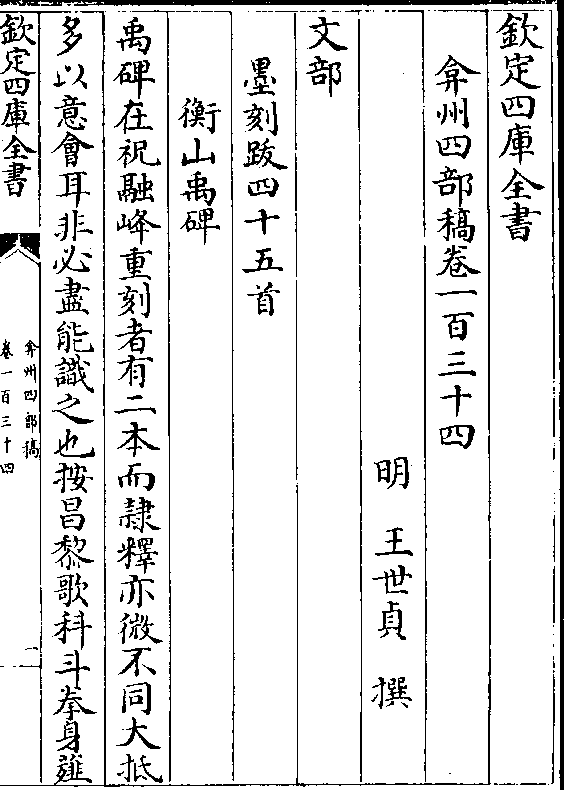 欽定四庫全書
弇州四部稿卷一百三十四
明　王世貞　撰
文部
墨刻跋四十五首
衡山禹碑
禹碑在祝融峰重刻者有二本而隷釋亦微不同大抵
多以意會耳非必盡能識之也按昌黎歌科斗拳身薤
欽定四庫全書
弇州四部稿
卷一百三十四
一